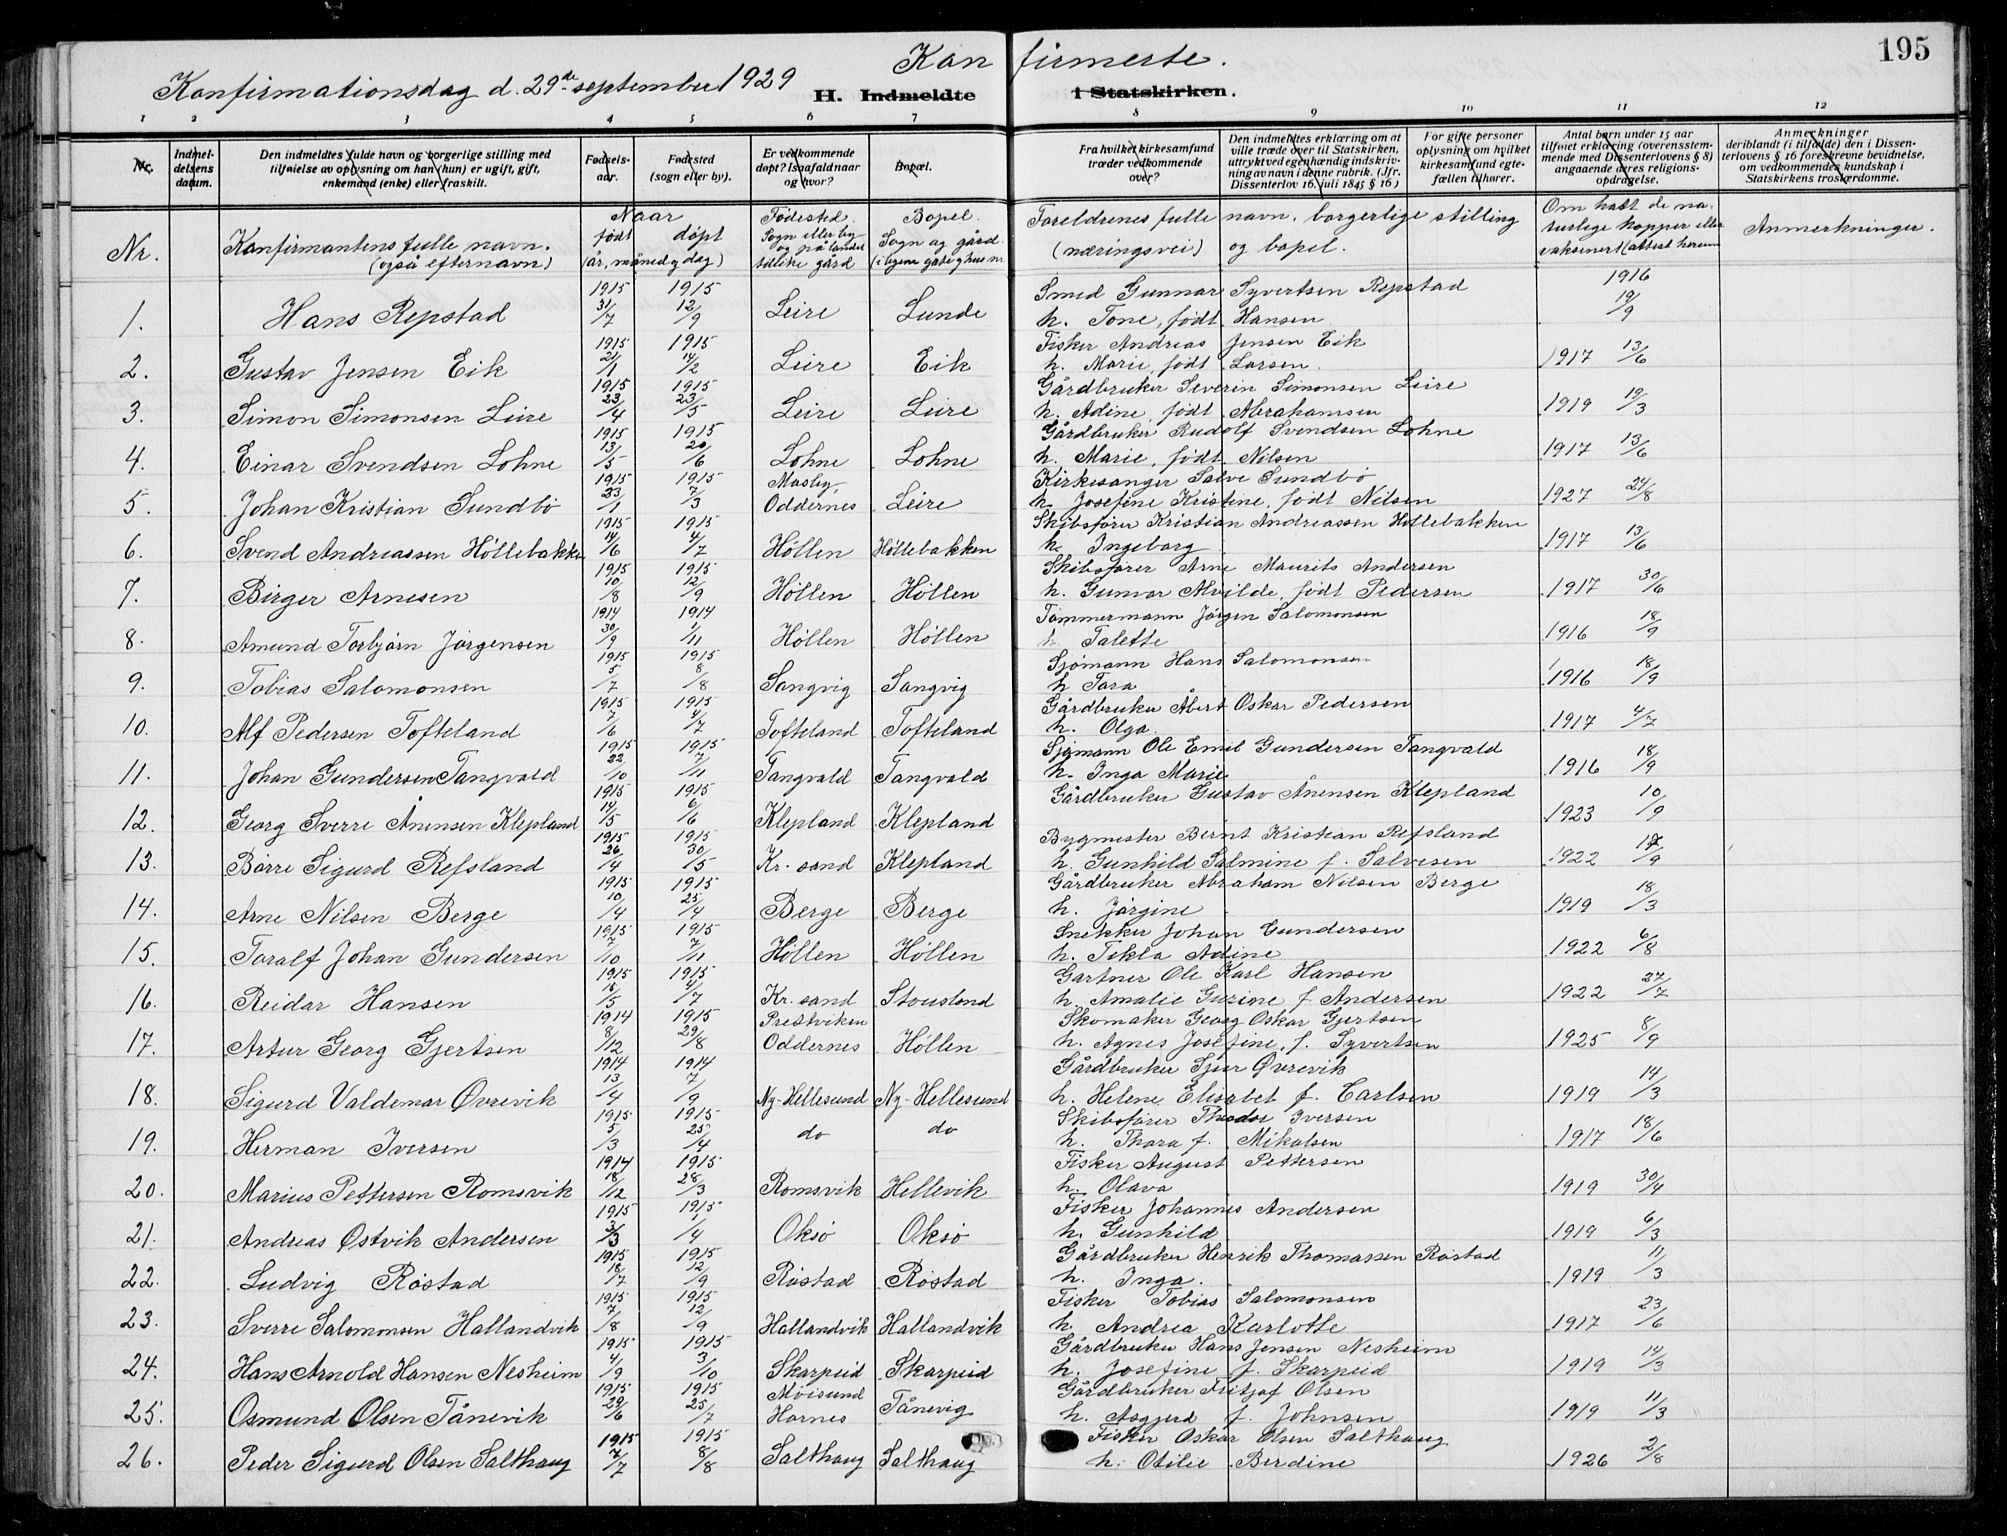 195
Konfirmerte.
Konfirmationsdag d. 29de september 1929
H. Indmeldte i Statskirken.
1 2 3 4 5 6 7 8 9 10 11 12
Nr. | Indmeldelsens datum. | Den indmeldtes fulde navn og borgerlige stilling med tilføielse av oplysning om han (hun) er ugift, gift, enkemand (enke) eller fraskilt. | Fødselsaar. | Fødested (sogn eller by). | Er vedkommende døpt? Isaafald naar og hvor? | Bopæl. | Fra hvilket kirkesamfund træder vedkommende over? | Den indmeldtes erklæring om at ville træde over til Statskirken, uttrykt ved egenhændig indskrivning av navn i denne rubrik. (Jfr. Dissenterlov 16. juli 1845 § 16) | For gifte personer oplysning om hvilket kirkesamfund egtefællen tilhører. | Antal børn under 15 aar tilføiet erklæring (overensstemmende med Dissenterlovens § 8) angaaende deres religionsopdragelse. | Anmerkninger deriblandt (i tilfælde) den i Dissenterlovens § 16 foreskrevne bevidnelse, om vedkommendes kundskap i Statskirkens troslærdomme.
Nr. | Konfirmantens fulle navn. (også efternavn) | Naar født døpt (år, måned og dag) | Fødested. Sogn eller by og på landet tillike gård | Bopel. Sogn og gård. (i byen gate og hus nr. | Foreldrenes fulle navn, borgerlige stilling (næringsvei) og bopel. | Om hatt de naturlige kopper eller vaksinert (attest herom | Anmerkninger.
1. | Hans Repstad | 1915 31/7 | 1915 12/9 | Leire | Lunde | Smed Gunnar Syvertsen Repstad h. Tone, født Hansen | 1916 19/9
2. | Gustav Jensen Eik | 1915 21/1 | 1915 14/2 | Leire | Eik | Fisker Andreas Jensen Eik h. Marie, født Larsen. | 1917 13/6
3. | Simon Simonsen Leire | 1915 23/4 | 1915 23/5 | Leire | Leire | Gårdbruker Severin Simonsen Leire h. Adine, født Abrahamsen | 1919 19/3
4. | Einar Svendsen Lohne | 1915 13/5 | 1915 20/6 | Lohne | Lohne | Gårdbruker Rudolf Svendsen Lohne h. Marie, født Nilsen | 1917 13/6
5. | Johan Kristian Sundbø | 1915 23/1 | 1915 7/3 | Mosby, Oddernes | Leire | Kirkesanger Salve Sundbø h. Josefine Kristine, født Nilsen | 1927 24/8
6. | Svend Andreassen Höllebakken | 1915 14/6 | 1915 4/7 | Höllen | Höllebakken | Skibsfører Kristian Andreassen Höllebakken h. Ingeborg | 1917 13/6
7. | Birger Arnesen | 1915 10/8 | 1915 12/9 | Höllen | Höllen | Skibsfører Arne Maurits Andersen h. Gunvor Alvilde, født Pedersen | 1917 30/6
8. | Amund Torbjörn Jörgensen | 1914 30/9 | 1914 1/11 | Höllen | Höllen | Tömmermann Jörgen Salomonsen h Talette | 1916 18/9
9. | Tobias Salomonsen | 1915 5/7 | 1915 8/8 | Langvig | Langvig | Sjömann Hans Salomonsen h Tora | 1916 18/9
10. | Alf Pedersen Tofteland | 1915 7/6 | 1915 4/7 | Tofteland | Tofteland | Gårdbruker Åbert Oskar Pedersen h. Olga | 1917 4/7
11. | Johan Gundersen Tangvald | 1915 22/10 | 1915 7/11 | Tangvald | Tangvald | Sjømann Ole Emil Gundersen Tangvald h. Inga Marie | 1916 18/9
12. | Georg Sverre Ånensen Klepland | 1915 14/5 | 1915 6/6 | Klepland | Klepland | Gårdbruker Gustav Ånensen Klepland | 1923 10/9
13. | Börre Sigurd Refsland | 1915 26/4 | 1915 30/5 | Kr. sand | Klepland | Bygmester Bernt Kristian Refsland h. Gunhild Salmine f. Salvesen | 1922
14. | Arne Nilsen Berge | 1915 10/4 | 1915 25/4 | Berge | Berge | Gårdbruker Abraham Nilsen Berge h. Jörgine | 1919 18/3
15. | Toralf Johan Gundersen | 1915 7/10 | 1915 7/11 | Höllen | Höllen | Snekker Johan Gundersen h. Tekla Adine | 1922 6/8
16. | Reidar Hansen | 1915 18/5 | 1915 4/7 | Kr. sand | Stousland | Gartner Ole Karl Hansen h. Amalie Gurine f. Andersen | 1922 27/7
17. | Artur Georg Gjertsen | 1914 8/12 | 1915 29/8 | Prestviken Oddernes | Höllen | Skomaker Georg Oskar Gjertsen h. Agnes Josefine, f. Syvertsen | 1925 8/9
18. | Sigurd Valdemar Øvrevik | 1914 13/4 | 1914 7/9 | Ny-Hellesund | Ny-Hellesund | Gårdbruker Sjur Øvrevik h. Helene Elisabet f. Carlsen | 1919 14/3
19. | Herman Iversen | 1915 5/3 | 1915 25/4 | do | do | Skibsfører Theodor Iversen h. Thora f. Mikalsen | 1917 18/6
20. | Marius Pettersen Romsvik | 1914 18/12 | 1915 28/3 | Romsvik | Hellevik | Fisker August Pettersen h. Olava | 1919 30/4
21. | Andreas Østvik Andersen | 1915 3/3 | 1915 1/4 | Oksø | Oksø | Fisker Johannes Andersen h. Gunhild | 1919 6/3
22. | Ludvig Röstad | 1915 18/7 | 1915 12/9 | Röstad | Röstad | Gårdbruker Henrik Thomassen Röstad h. Inga. | 1919 11/3
23. | Sverre Salomonsen Hallandvik | 1915 7/8 | 1915 12/9 | Hallandvik | Hallandvik | Fisker Tobias Salomonsen h. Andrea Karlotte | 1917 23/6
24. | Hans Arnold Hansen Nesheim | 1915 4/9 | 1915 3/10 | Skarpeid | Skarpeid | Gårdbruker Hans Jensen Nesheim h. Josefine f. Skarpeid | 1919 14/3
25. | Osmund Olsen Tånevik | 1915 29/6 | 1915 25/7 | Möisund Hornes | Tånevig | Gårdbruker Fritjof Olsen h. Asgjerd f. Johnsen | 1919 11/3
26. | Peder Sigurd Olsen Salthaug | 1915 7/7 | 1915 8/8 | Salthaug | Salthaug | Fisker Oskar Olsen Salthaug h. Otilie Berdine | 1926 2/8